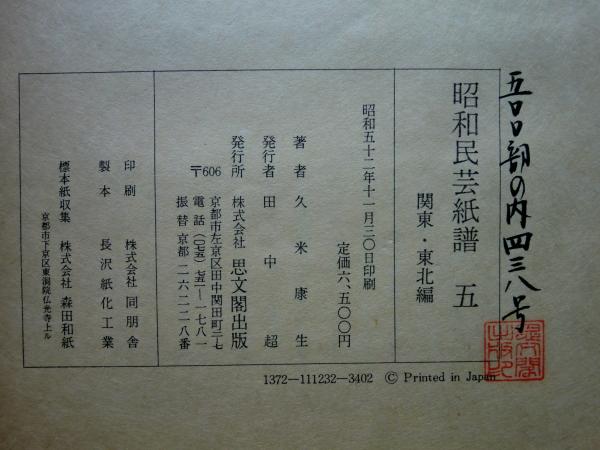 五〇〇部の内四三八号
昭和民芸紙譜 五
関東・東北編
昭和五十二年十一月三〇日印刷
定価六、五〇〇円
著者 久米康生
発行者 田中超
発行所 株式会社 思文閣出版
〒606 京都市左京区田中関田町二ー七
電話(〇七五)七五一ー一七八一
振替京都 二六二二八番
印刷 株式会社 同朋舎
製本 長沢紙化工業
標本紙収集 株式会社 森田和紙
京都市下京区東洞院仏光寺上ル
1372—111232—3402 © Printed in Japan
思文閣
出版印